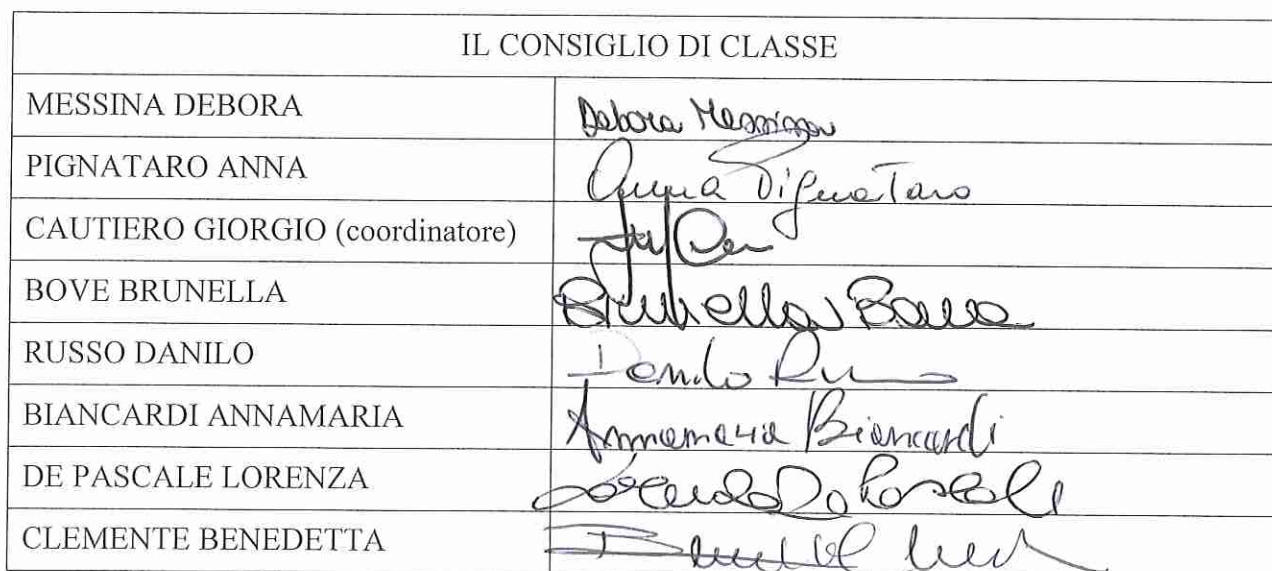 IL CONSIGLIO DI CLASSE
MESSINA DEBORA Debora Messina
PIGNATARO ANNA Anna Pignataro
CAUTIERO GIORGIO (coordinatore)
BOVE BRUNELLA Brunella Bove
RUSSO DANILO Danilo Russo
BIANCARDI ANNAMARIA Annamaria Biancardi
DE PASCALE LORENZA Lorenza De Pascale
CLEMENTE BENEDETTA